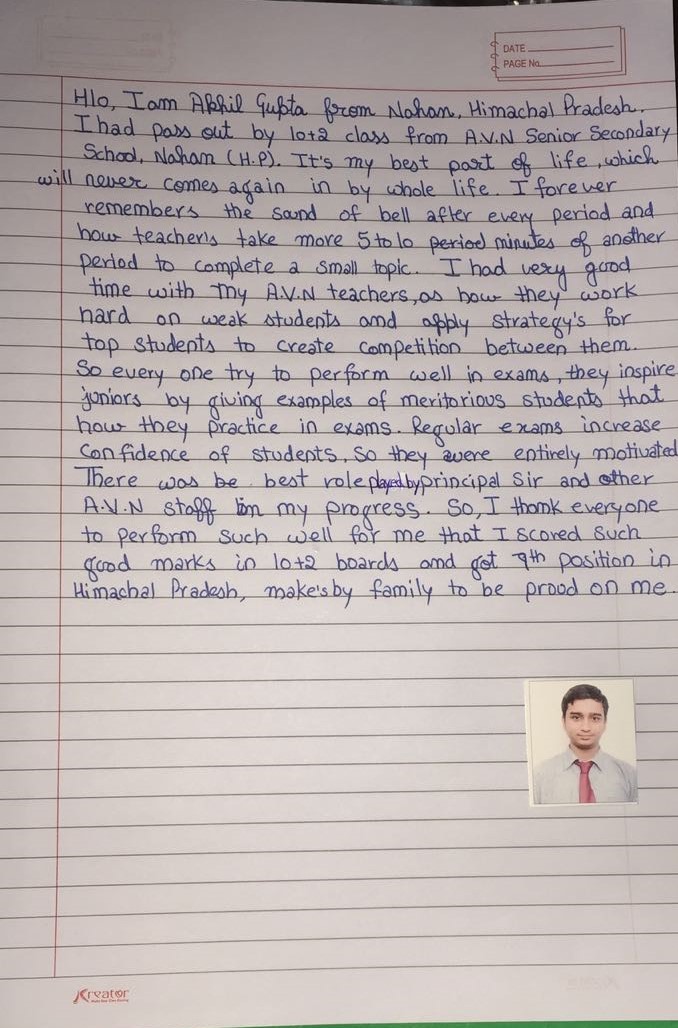 DATE
PAGE No.
Hlo, I am Akhil Gupta from Nahan, Himachal Pradesh.
I had pass out by 10+2 class from A.V.N Senior Secondary
School, Nahan (H.P). It's my best part of life, which
will never comes again in by whole life. I forever
remembers the sound of bell after every period and
how teacher's take more 5 to 10 period minutes of another
period to complete a small topic. I had very good
time with my A.V.N teachers, as how they work
hard on weak students and apply strategy's for
top students to create competition between them.
So every one try to perform well in exams, they inspire
juniors by giving examples of meritorious students that
how they practice in exams. Regular exams increase
confidence of students. So they were entirely motivated
There was be best role played by principal Sir and other
A.V.N staff in my progress. So, I thank everyone
to perform such well for me that I scored such
good marks in 10+2 boards and got 9th position in
Himachal Pradesh, make's by family to be proud on me.
Kreator